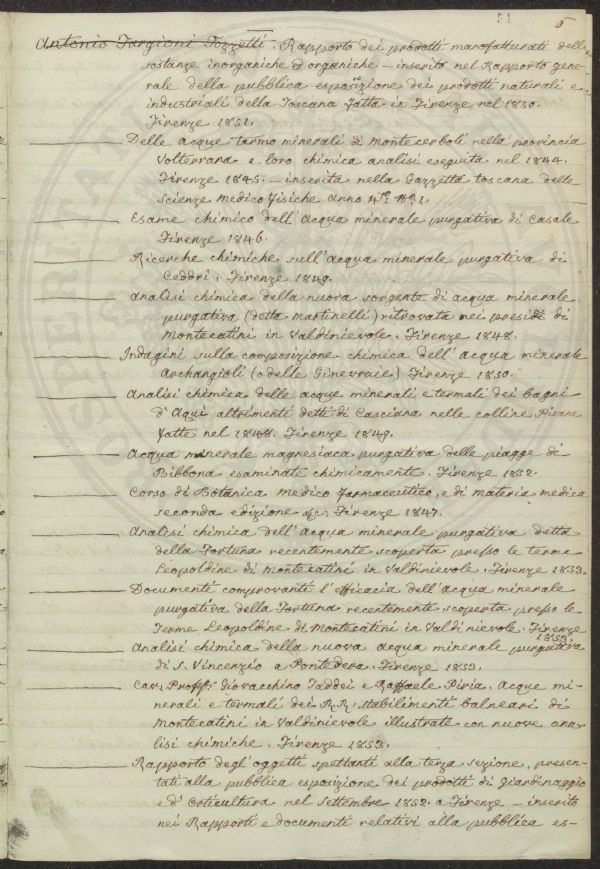 21 5
Antonio Targioni Tozzetti. Rapporto dei prodotti manofatturati delle
sostanze inorganiche ed organiche — inserito nel Rapporto gene-
rale della pubblica esposizione dei prodotti naturali e
industriali della Toscana fatta in Firenze nel 1850.
Firenze 1851.
Delle acque termo minerali di Montecerboli nella provincia
Volterrana e loro chimica analisi eseguita nel 1844.
Firenze 1845. — inserita nella Gazzetta toscana delle
scienze medico fisiche anno
Esame chimico dell'Acqua minerale purgativa di Casale
Firenze 1846.
Ricerche chimiche sull'acqua minerale purgativa di
Ceddri. Firenze 1849.
Analisi chimica della nuova sorgente di acqua minerale
purgativa (detta martinelli) ritrovata nei pressi di
Montecatini in Valdinievole. Firenze 1848.
Indagini sulla composizione chimica dell'acqua minerale
Archangioli (o delle Ginevraie) Firenze 1850.
Analisi chimica delle acque minerali e termali dei bagni
d'Aqui altrimenti detti di Casciana nelle colline Pisane
fatte nel 1848. Firenze 1849.
Acqua minerale magnesiaca purgativa delle piagge di
Bibbona esaminate chimicamente. Firenze 1852.
Corso di Botanica medico farmaceutico, e di materia medica
seconda edizione &c. Firenze 1847.
Analisi chimica dell'Acqua minerale purgativa detta
della Fortuna recentemente scoperta presso le terme
Leopoldine di Montecatini in Valdinievole. Firenze 1853.
Documenti comprovanti l'efficacia dell'acqua minerale
purgativa della Fortuna recentemente scoperta presso le
Terme Leopoldine di Montecatini in Valdinievole. Firenze
1853.
Analisi chimica della nuova acqua minerale purgativa
di S. Vincenzio a Pontedera. Firenze 1853.
Cav. Proff. Giovacchino Taddei e Raffaele Piria. Acque mi-
nerali e termali dei R.R. stabilimenti balneari di
Montecatini in Valdinievole illustrate con nuove ana-
lisi chimiche. Firenze 1853.
Rapporto degl'oggetti spettanti alla terza sezione, presen-
tati alla pubblica esposizione dei prodotti di giardinaggio
e d'orticultura nel Settembre 1852 a Firenze — inserito
nei Rapporti e documenti relativi alla pubblica es-